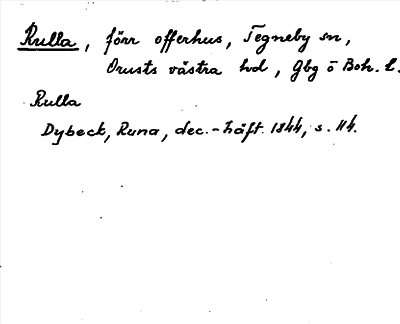 Rulla, förr offerhus, Tegneby sn,
Orusts västra hd, Gbg o Boh. l.
Rulla
Dybeck, Runa, dec.-häft. 1844, s. 114.